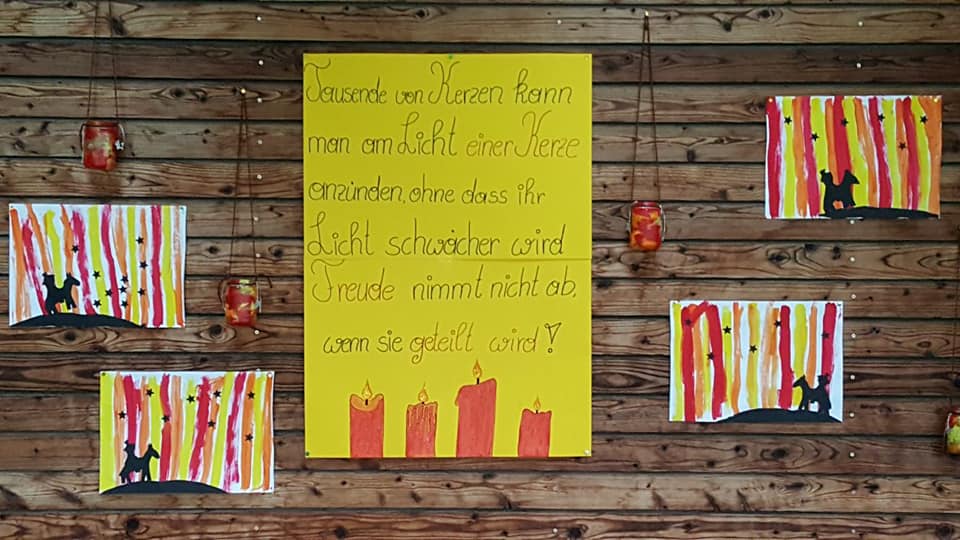 Tausende von Kerzen kann
man am Licht einer Kerze
anzünden, ohne dass ihr
Licht schwächer wird
Freude nimmt nicht ab,
wenn sie geteilt wird!